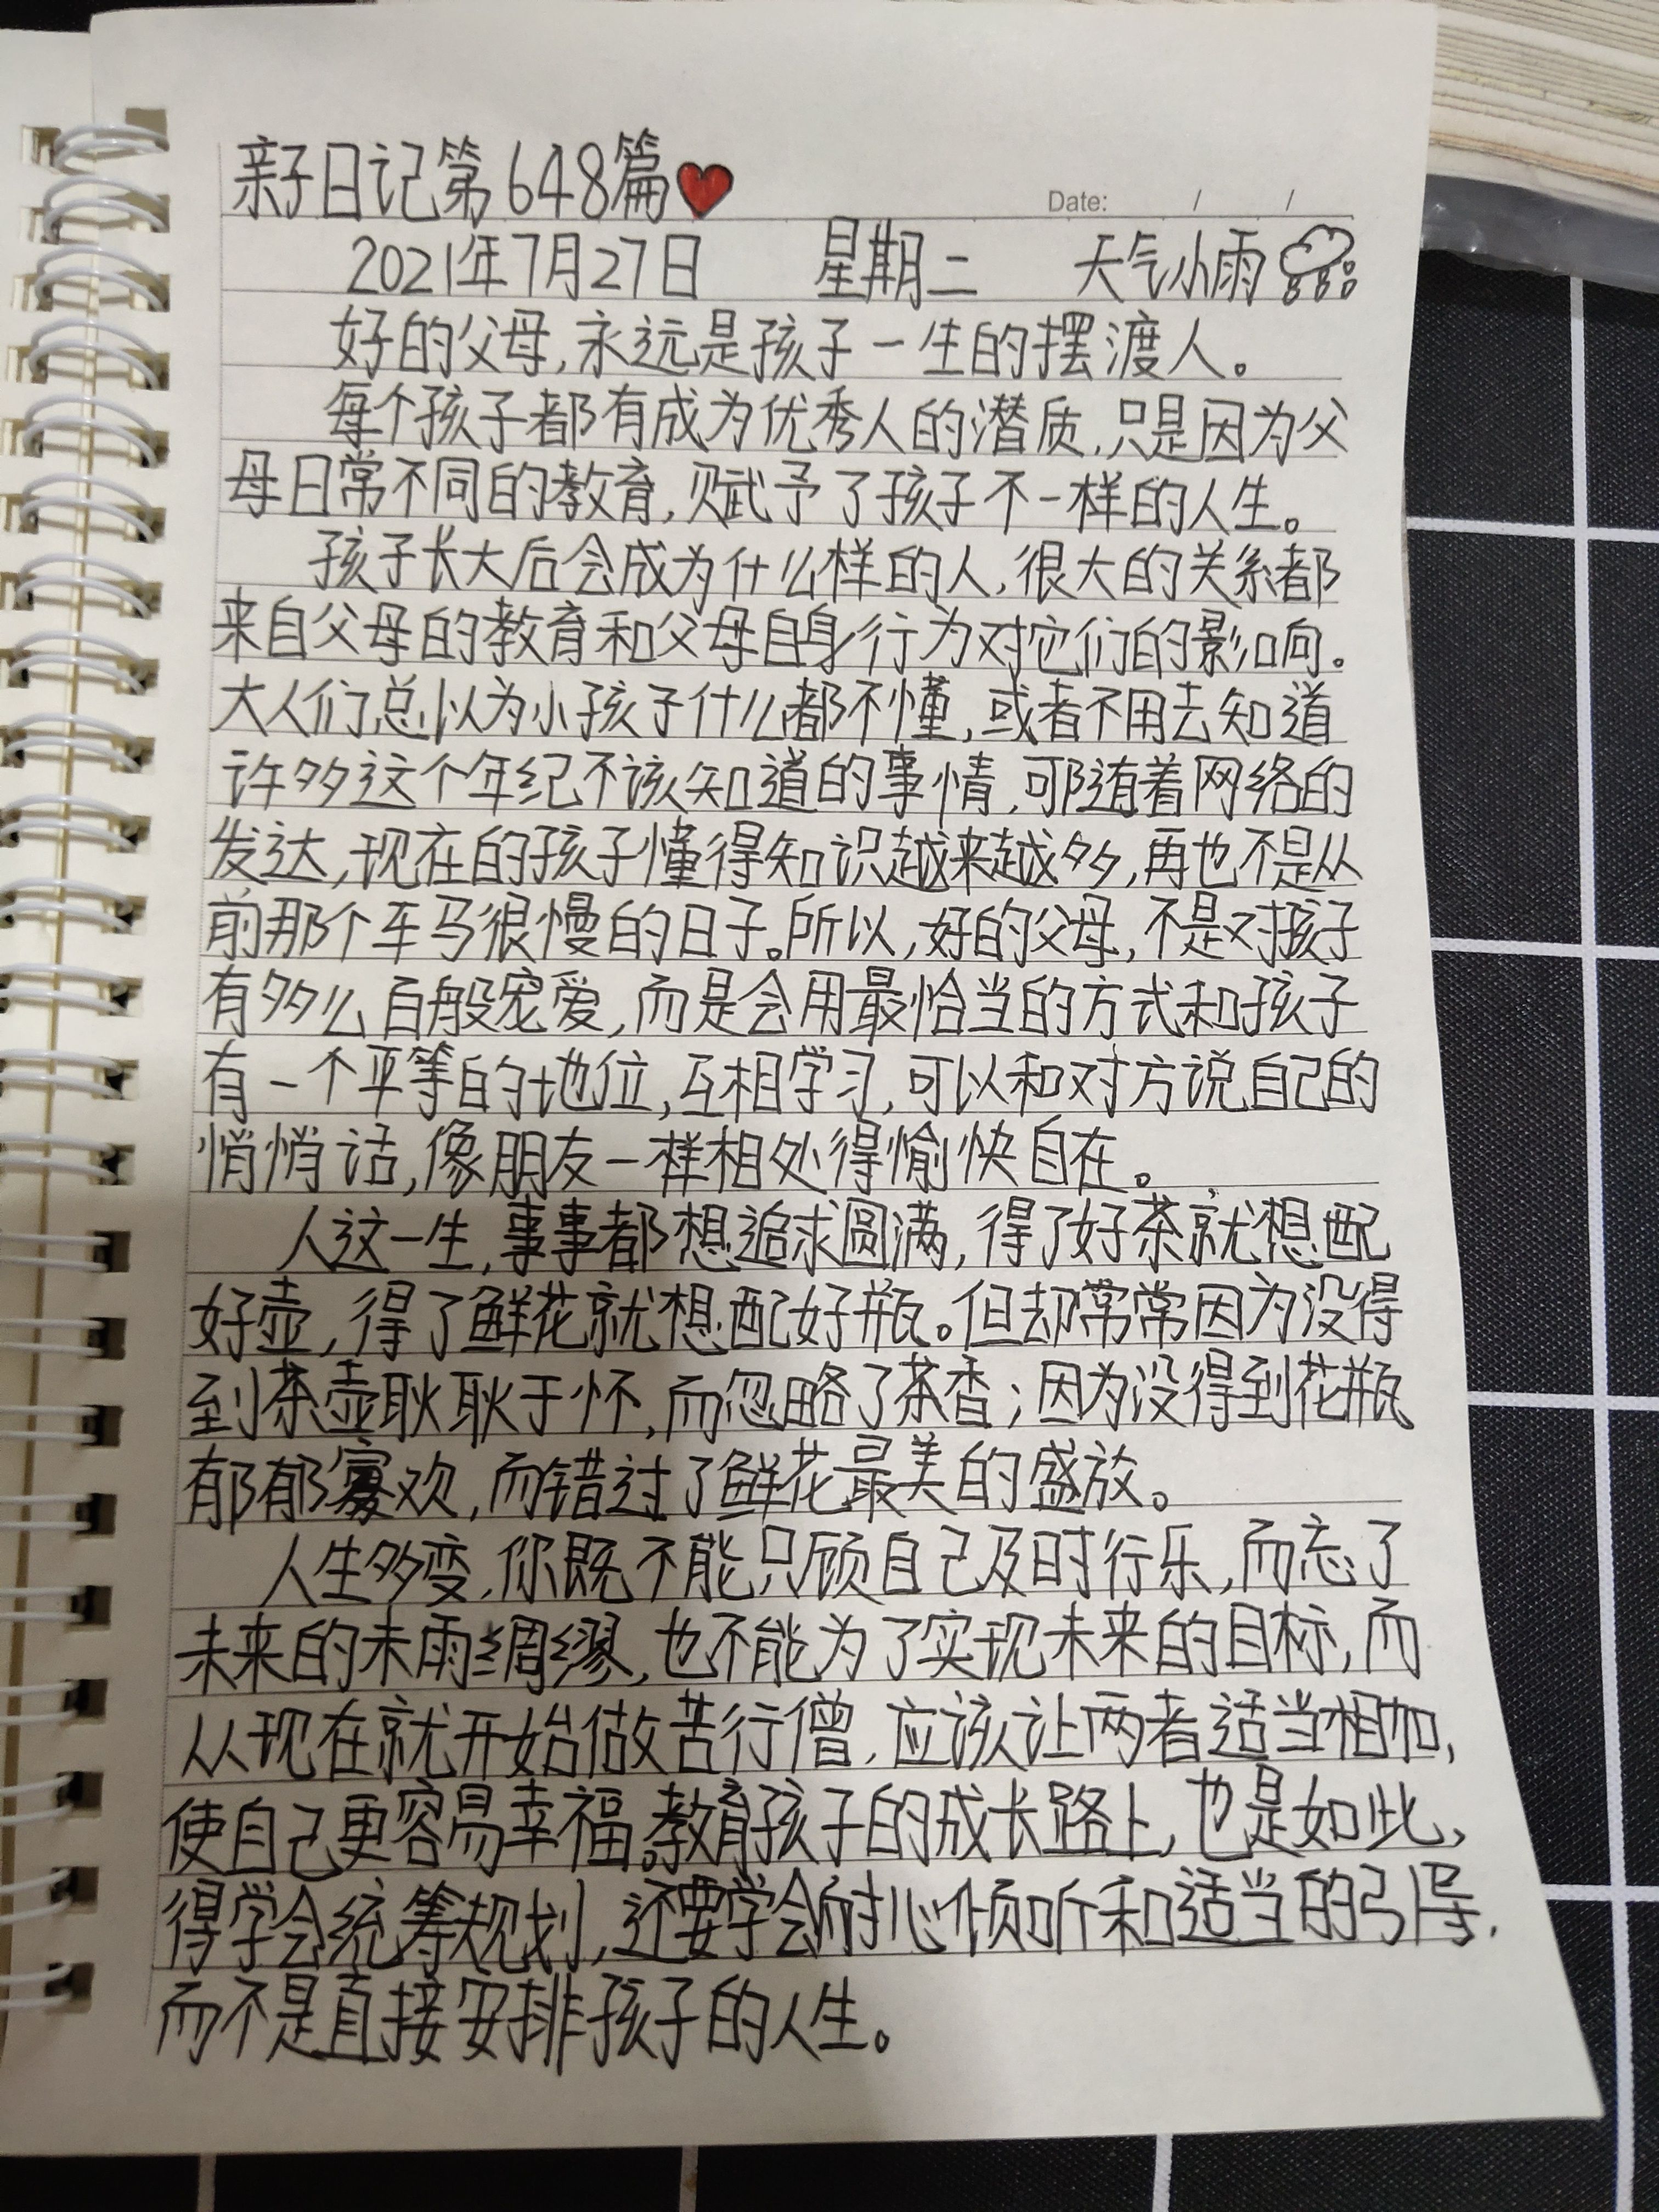 亲子日记第648篇
Date: / /
2021年7月27日 星期二 天气小雨
好的父母,永远是孩子一生的摆渡人。
每个孩子都有成为优秀人的潜质,只是因为父
母日常不同的教育,赋予了孩子不一样的人生。
孩子长大后会成为什么样的人,很大的关系都
来自父母的教育和父母自身行为对它们的影响。
大人们总以为小孩子什么都不懂,或者不用去知道
许多这个年纪不该知道的事情,可随着网络的
发达,现在的孩子懂得知识越来越多,再也不是从
前那个车马很慢的日子。所以,好的父母,不是对孩子
有多么百般宠爱,而是会用最恰当的方式和孩子
有一个平等的地位,互相学习,可以和对方说自己的
悄悄话,像朋友一样相处得愉快自在。
人这一生,事事都想追求圆满,得了好茶就想配
好壶,得了鲜花就想配好瓶。但却常常因为没得
到茶壶耿耿于怀,而忽略了茶香;因为没得到花瓶
郁郁寡欢,而错过了鲜花最美的盛放。
人生多变,你既不能只顾自己及时行乐,而忘了
未来的未雨绸缪,也不能为了实现未来的目标,而
从现在就开始做苦行僧,应该让两者适当相加,
使自己更容易幸福。教育孩子的成长路上,也是如此,
得学会统筹规划,还要学会耐心倾听和适当的引导,
而不是直接安排孩子的人生。